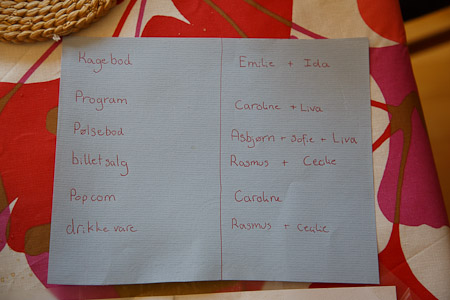 Kagebod Emilie + Ida
Program Caroline + Liva
Pølsebod Asbjørn + Sofie + Liva
billetsalg Rasmus + Cecilie
Popcorn Caroline
drikkevare Rasmus + Cecilie